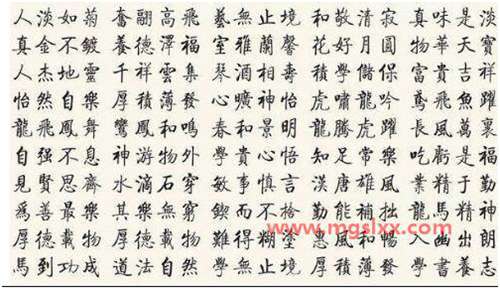 人淡如菊奮翮高飛藝無止境和敬清寂真味是淡
真金不鍍養德澤福室雅蘭馨花好月圓物華天寶
人杰地靈千祥雲集琴酒相壽學儲保富貴吉祥
怡然自樂厚積薄發心曠神怡虎嘯龍吟鳶飛魚躍
龍飛鳳舞鸞鳳和鳴春和景明龍騰虎躍長風萬裏
自强不息神游物外學貴心悟知足常樂吃虧是福
見賢思齊水滴石穿敏事慎言漢唐雄風業精于勤
爲善最樂其樂無窮鍥而不捨勤能補拙龍馬精神
厚德載物厚德載物難得糊塗惠風和暢入幽出朗
馬到功成道德法自學無止境厚積薄發書養志
www.mgslxx.com